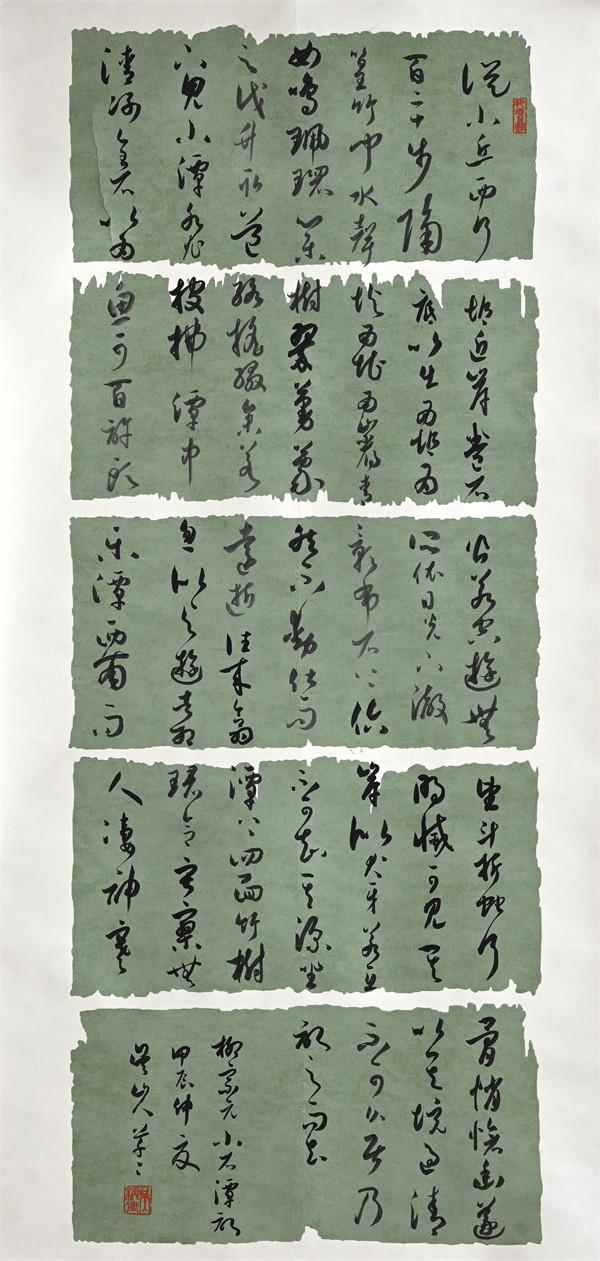 從小丘西行
百二十步隔
篁竹聞水聲
如鳴珮環心樂
之伐竹取道
下見小潭水尤
清冽全石以為
底近岸卷石
底以出為坻為
嶼為嵁為巖青
樹翠蔓蒙
絡搖綴參差
披拂潭中
魚可百許頭
皆若空遊無
所依日光下澈
影布石上佁
然不動俶而
遠逝往來翕
忽似與遊者相
樂潭西南而
望斗折蛇行
明滅可見其
岸勢犬牙差互
不可知其源坐
潭上四面竹樹
環合寂寥無
人凄神寒
骨悄愴幽邃
以其境過清
不可久居乃
記之而去
柳宗元小石潭記
甲辰仲夏